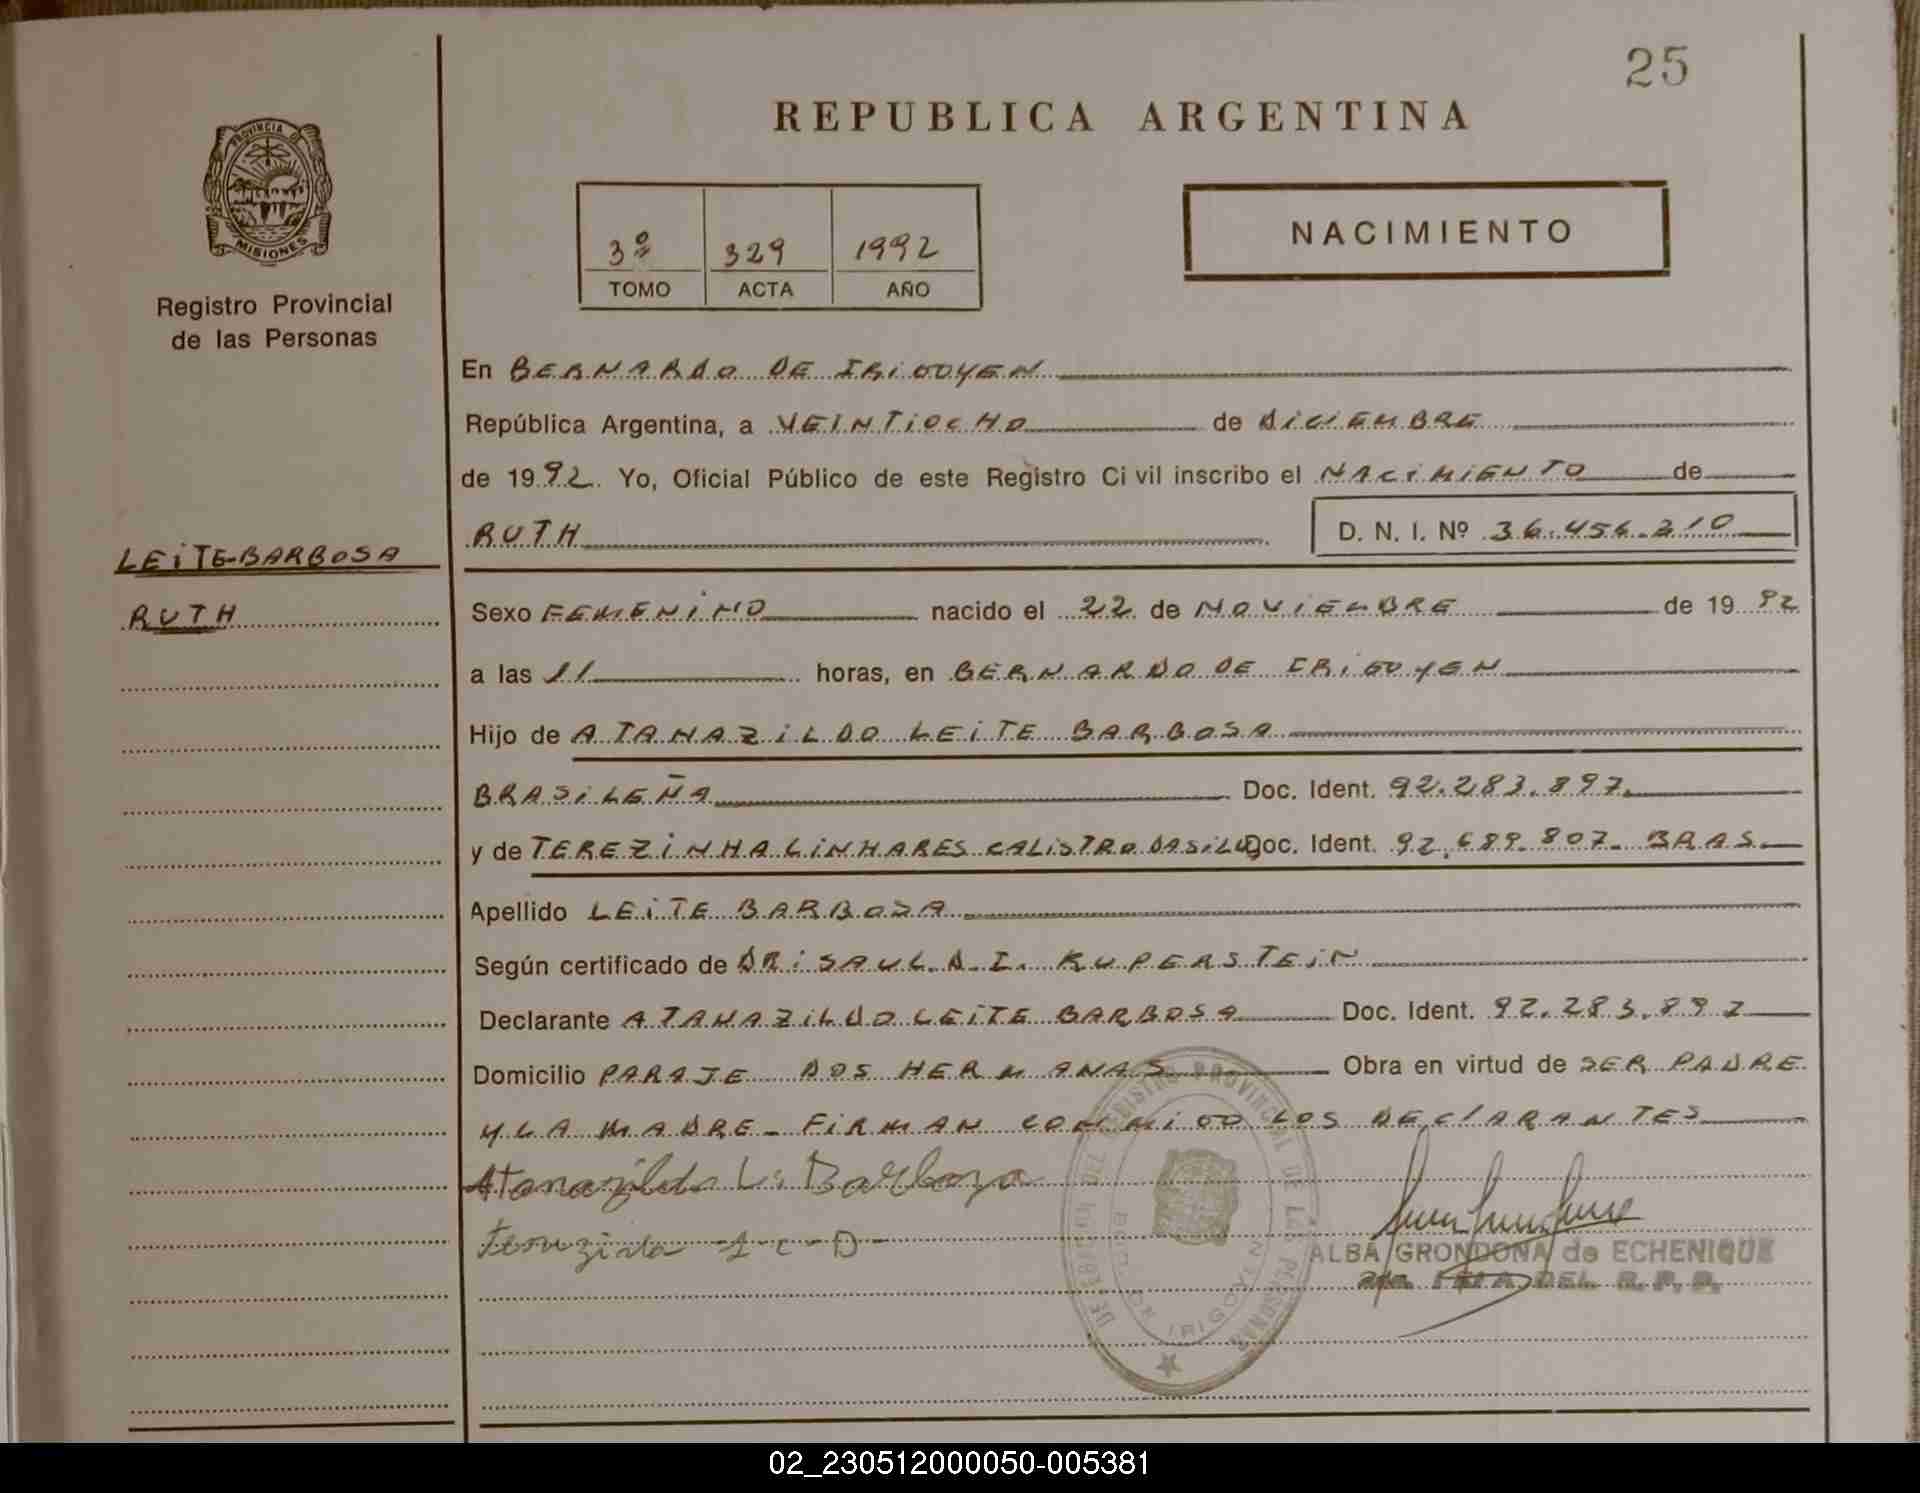 25
REPUBLICA ARGENTINA
PROVINCIA DE
MISIONES
Registro Provincial
de las Personas
3º 329 1992
TOMO ACTA AÑO
NACIMIENTO
En BERNARDO DE IRIGOYEN
República Argentina, a VEINTIOCHO de DICIEMBRE
de 1992. Yo, Oficial Público de este Registro Civil inscribo el NACIMIENTO de
RUTH D. N. I. Nº 36.456.210
LEITE-BARBOSA
RUTH
Sexo FEMENINO nacido el 22 de NOVIEMBRE de 1992
a las 11 horas, en BERNARDO DE IRIGOYEN
Hijo de ATANAZILDO LEITE BARBOSA
BRASILEÑA Doc. Ident. 92.283.897.
y de TEREZINHA LINHARES CALISTRO DASILVA Doc. Ident. 92.689.807. BRAS.
Apellido LEITE BARBOSA
Según certificado de DR: SAUL D. I. KUPERSTEIN
Declarante ATANAZILDO LEITE BARBOSA Doc. Ident. 92.283.897
Domicilio PARAJE DOS HERMANAS Obra en virtud de SER PADRE
Y LA MADRE- FIRMAN CONMIGO LOS DECLARANTES
Atanazildo L. Barboza
ALBA GRONDONA de ECHENIQUE
JEFA DEL R. P. P.
DELEGACION DEL REGISTRO PROVINCIAL DE LAS PERSONAS
BDO. DE IRIGOYEN
02_230512000050-005381